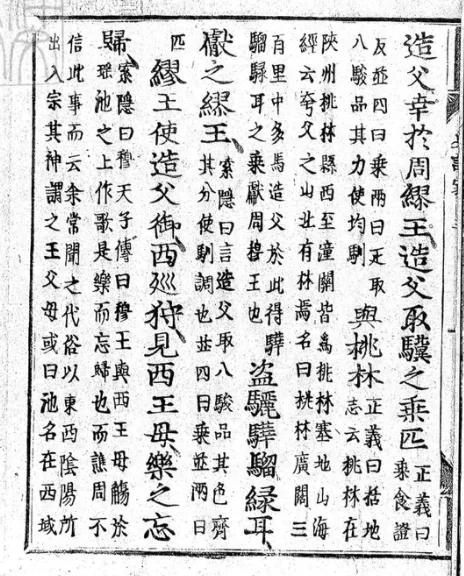 造父幸於周繆王造父取驥之乘匹正義曰乘食證
反並四曰乘兩曰疋取八駿品其力使均馴與桃林正義曰括地志云桃林在
陝州桃林縣西至潼關皆為桃林塞地山海經云夸父之山北有林焉名曰桃林廣闊三
百里中多馬造父於此得驊騮騄耳之乘獻周穆王也盜驪驊騮綠耳
獻之繆王索隱曰言造父取八駿品其色齊其分使馴調也並四曰乘並兩曰
匹繆王使造父御西廵狩見西王母樂之忘
歸索隱曰穆天子傳曰穆王與西王母觴於瑶池之上作歌是樂而忘歸也而譙周不
信此事而云余常聞之代俗以東西陰陽所出入宗其神謂之王父母或曰池名在西域